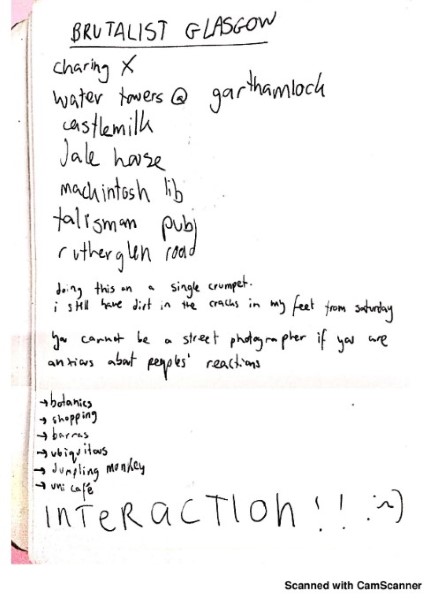 BRUTALIST GLASGOW
charing X
water towers @ garthamlock
castlemilk
Jale house
mackintosh lib
talisman pub
rutherglen road
doing this on a single crumpet.
i still have dirt in the cracks in my feet from saturday
you cannot be a street photographer if you are
anxious about peoples' reactions
→ botanics
→ shopping
→ barras
→ ubiquitous
→ dumpling monkey
→ uni café
INTERACTION !! :~)
Scanned with CamScanner